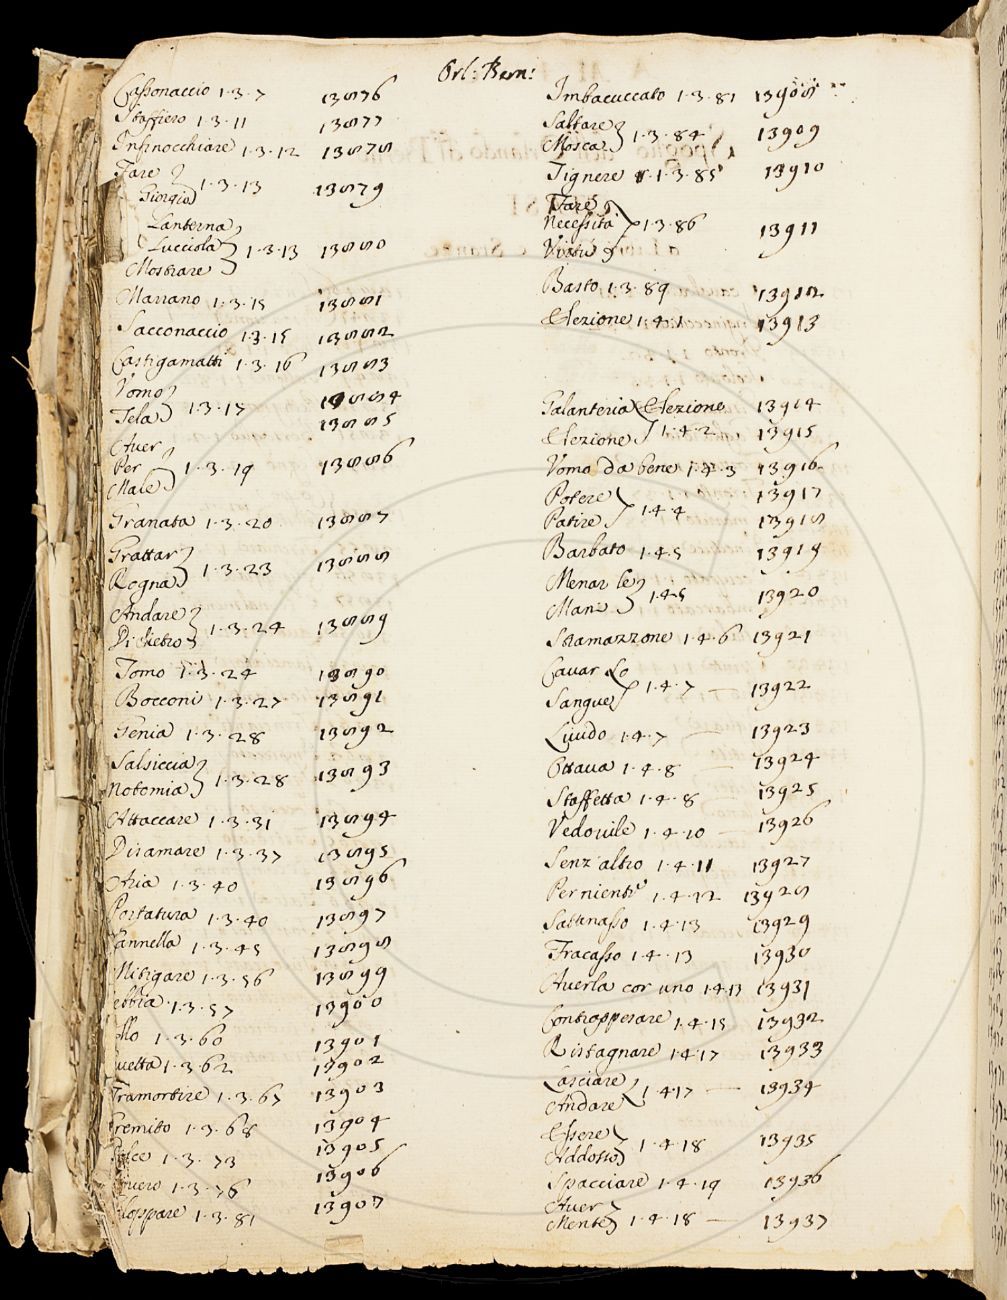 Orl: Bern:
Cassonaccio 1·3·7 13876
Staffiero 1·3·11 13877
Infinocchiare 1·3·12 13878
Fare
Giorgio 1·3·13 13879
Lanterna
Lucciola 1·3·13 13880
Mostrare
Marrano 1·3·15 13881
Sacconaccio 1·3·15 13882
Castigamatti 1·3·16 13883
Vomo 13884
Tela 1·3·17 13885
Auer
Per 1·3·19 13886
Male
Granata 1·3·20 13887
Grattar
Rogna 1·3·23 13888
Andare
Di dietro 1·3·24 13889
Tomo 1·3·24 13890
Bocconi 1·3·27 13891
Genia 1·3·28 13892
Salsiccia
Notomia 1·3·28 13893
Attaccare 1·3·31 13894
Diramare 1·3·37 13895
Aria 1·3·40 13896
Portatura 1·3·40 13897
Cannella 1·3·45 13898
Mitigare 1·3·56 13899
ebbia 1·3·57 13900
ollo 1·3·60 13901
uetta 1·3·62 13902
Tramortire 1·3·65 13903
Fremito 1·3·68 13904
1·3·73 13905
1·3·76 13906
loppare 1·3·81 13907
Imbacuccato 1·3·81 13908
Saltare
Mosca 1·3·84 13909
Tignere 1·3·85 13910
Fare
Necessita 1·3·86 13911
Virtu
Basto 1·3·89 13912
Elezione 1·4·1 13913
Galanteria Elezione 13914
Elezione 1·4·2 13915
Vomo da bene 1·4·3 13916
Potere 13917
Patire 1·4·4 13918
Barbato 1·4·5 13919
Menar le
Mani 1·4·5 13920
Stramazzone 1·4·6 13921
Cauar Lo
Sangue 1·4·7 13922
Liuido 1·4·7 13923
Ottaua 1·4·8 13924
Staffetta 1·4·8 13925
Vedouile 1·4·10 13926
Senz'altro 1·4·11 13927
Perniente 1·4·12 13928
Sattanasso 1·4·13 13929
Fracasso 1·4·13 13930
Auerla cor uno 1·4·13 13931
Contrapperare 1·4·15 13932
Ristagnare 1·4·17 13933
Lasciare
Andare 1·4·17 13934
Essere
Addosso 1·4·18 13935
Spacciare 1·4·19 13936
Auer
Mente 1·4·18 13937